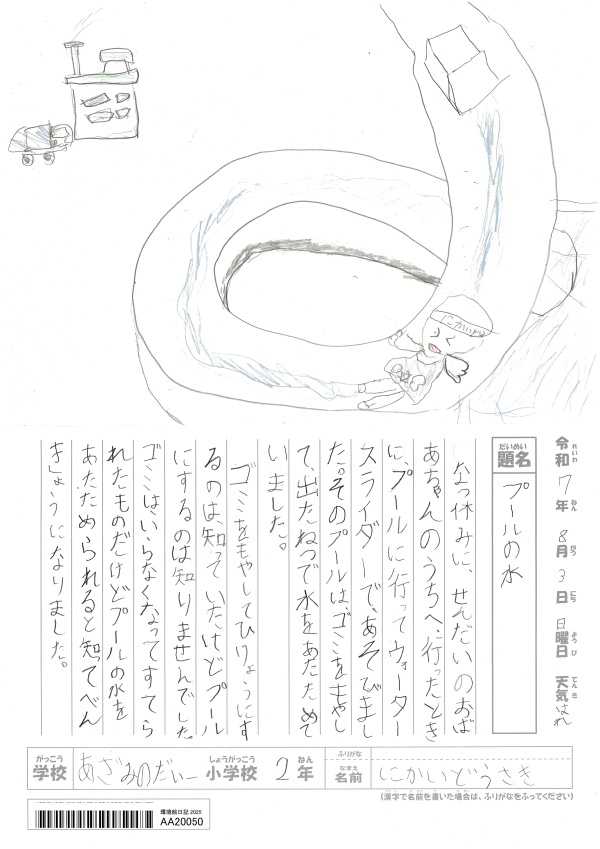 にかいどう
令和7年8月3日日曜日 天気はれ
れいわ ねん がつ にち ようび てんき
だいめい
題名 プールの水
なつ休みに、せんだいのおば
あちゃんのうちへ行ったとき
に、プールに行ってウォーター
スライダーで、あそびまし
た。そのプールは、ゴミをもやし
て、出たねつで水をあたためて
いました。
ゴミをもやしてひりょうにす
るのは、知っていたけどプール
にするのは知りませんでした。
ゴミは、いらなくなってすてら
れたものだけどプールの水を
あたためられると知ってべん
きょうになりました。
がっこう しょうがっこう ねん
学校 あざみのだい一小学校 2年
ふりがな
なまえ
名前 にかいどうさき
(漢字で名前を書いた場合は、ふりがなをふってください)
環境絵日記 2025
AA20050